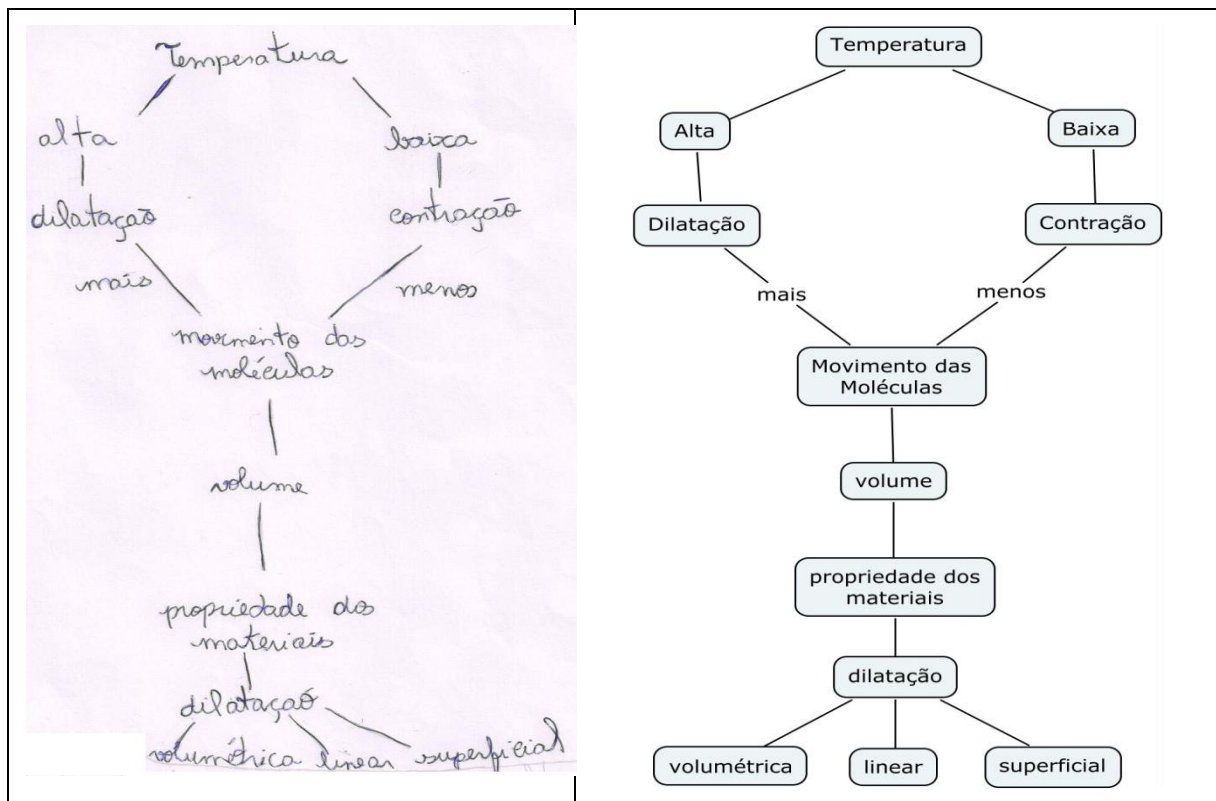 Temperatura
alta
baixa
dilatação
contração
mais
menos
movimento das
moléculas
volume
propriedade dos
materiais
dilatação
volumétrica linear superficial
Temperatura
Alta
Baixa
Dilatação
Contração
mais
menos
Movimento das
Moléculas
volume
propriedade dos
materiais
dilatação
volumétrica
linear
superficial